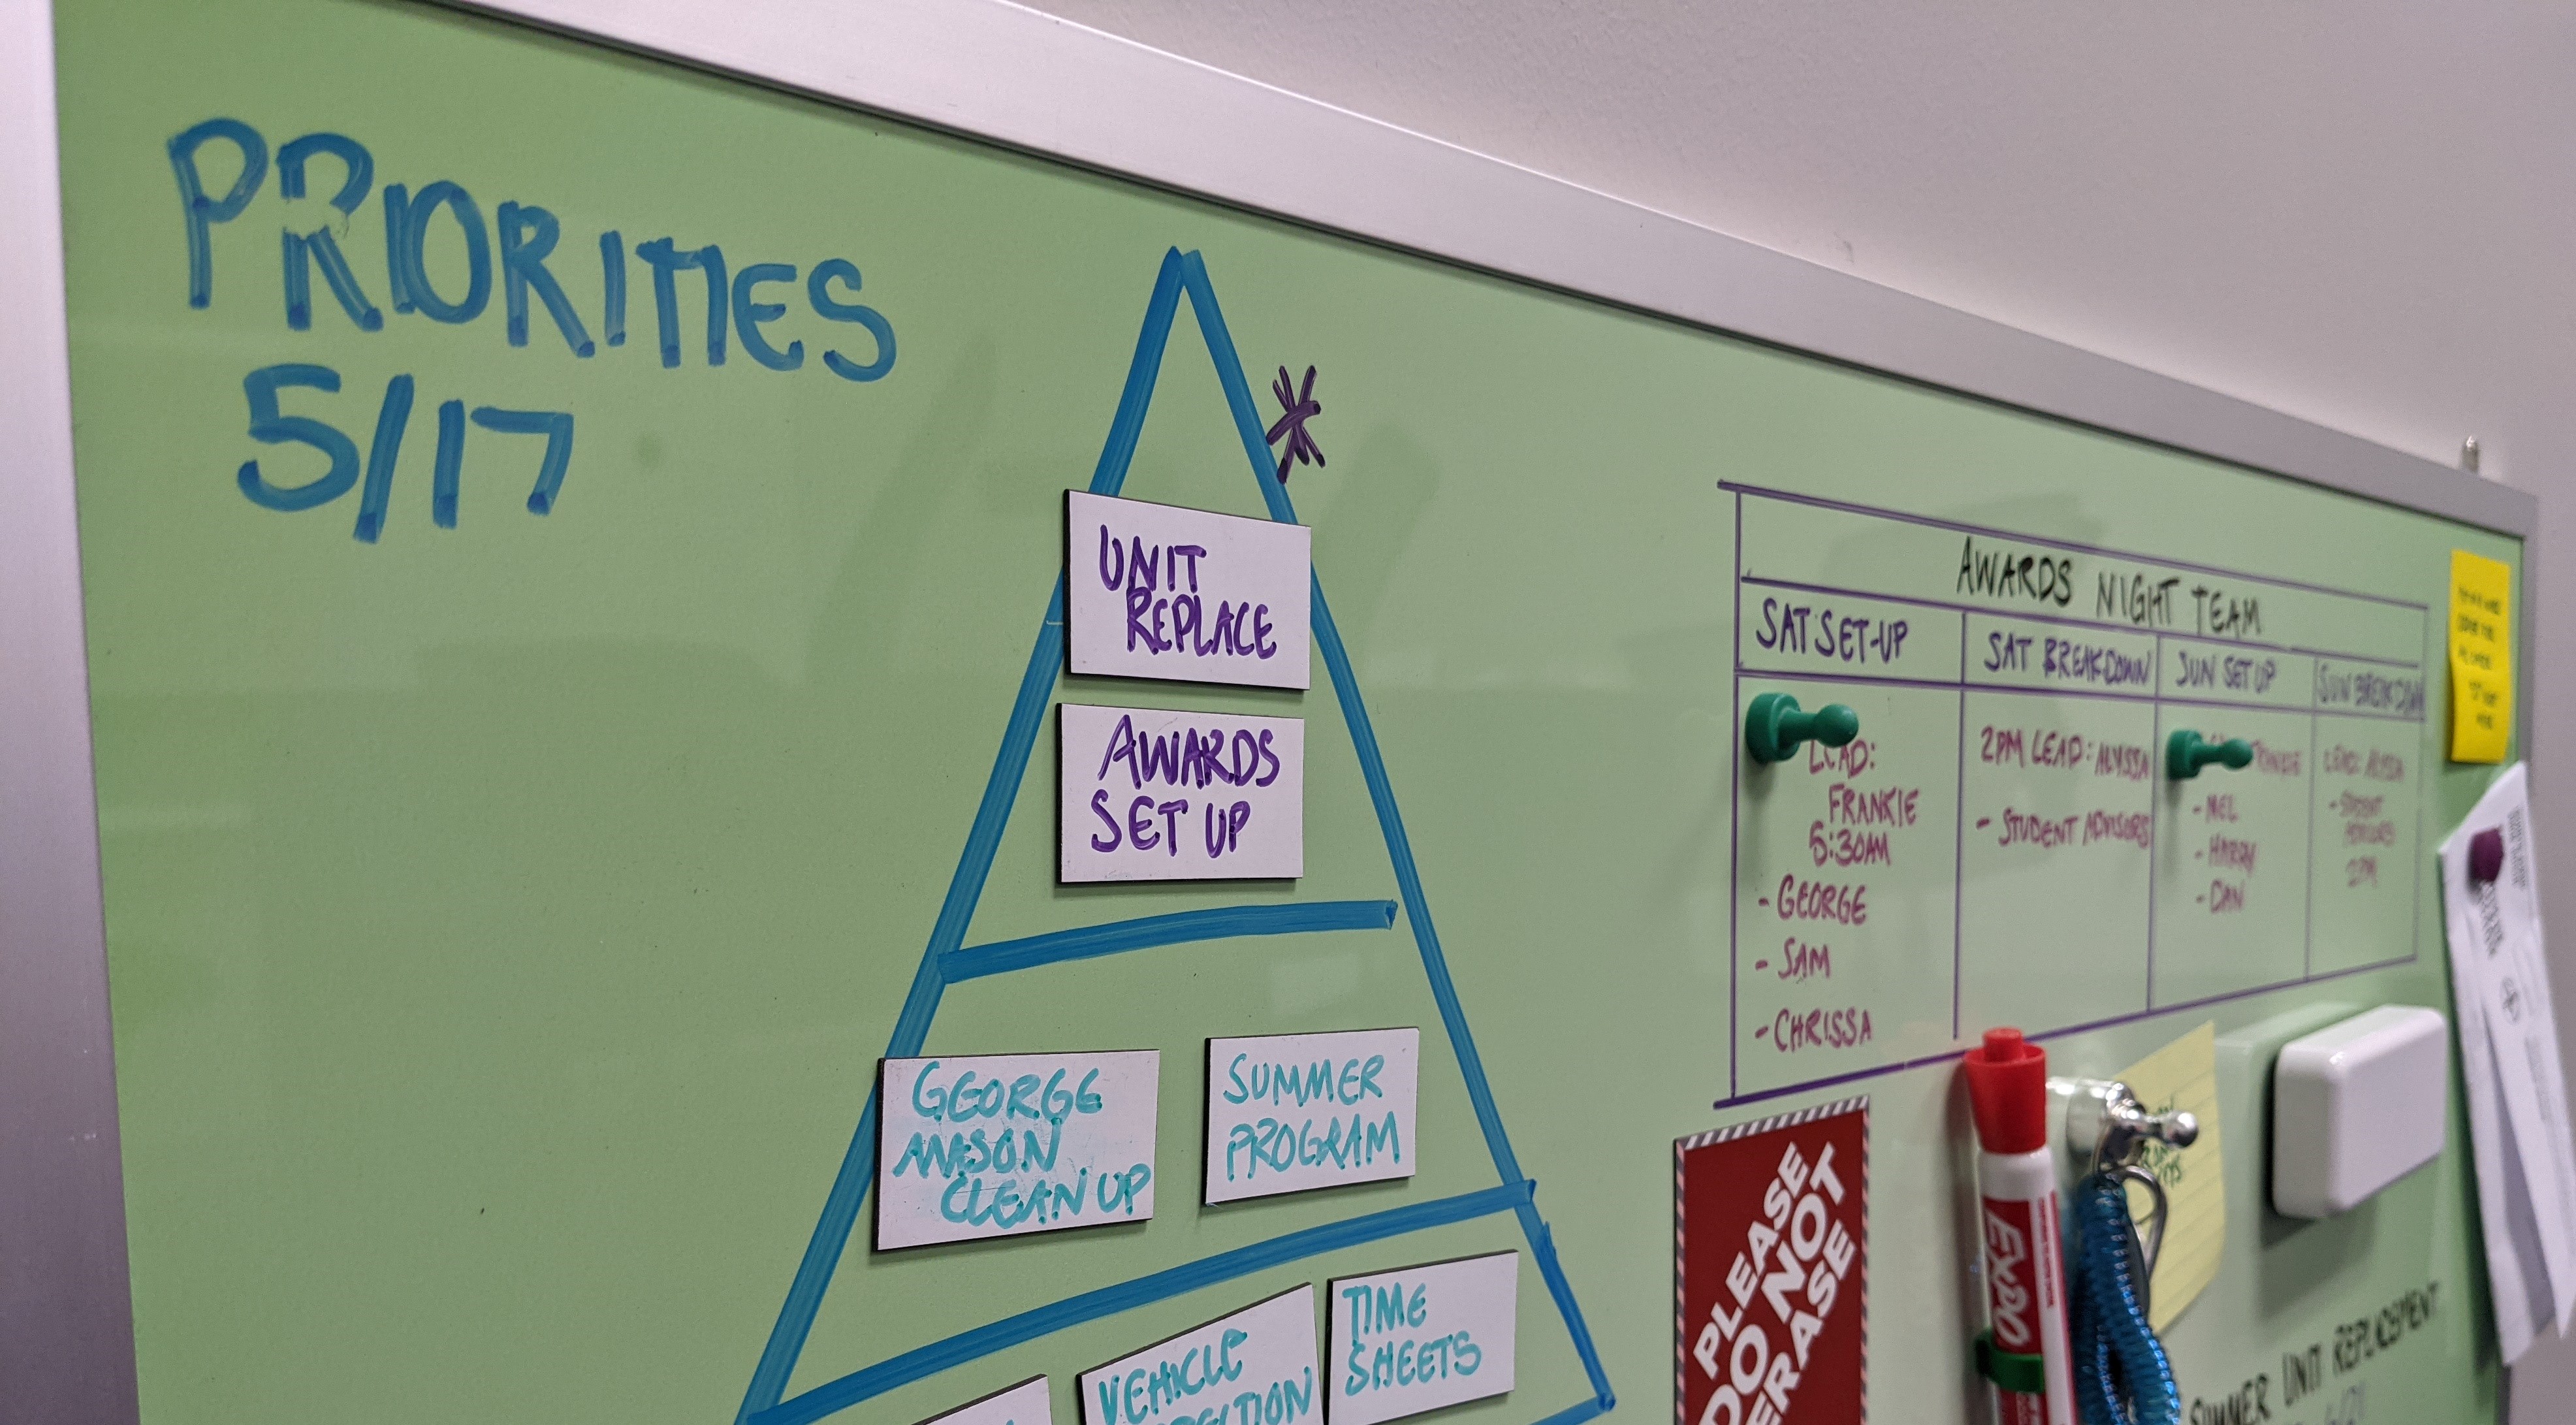 PRIORITIES
5/17
UNIT
REPLACE
AWARDS
SET UP
GEORGE
MASON
CLEAN UP
SUMMER
PROGRAM
VEHICLE
TIME
SHEETS
AWARDS NIGHT TEAM
SAT SET-UP
SAT BREAKDOWN
SUN SET UP
SUN BREAKDOWN
LEAD:
FRANKIE
5:30AM
- GEORGE
- SAM
- CHRISSA
2PM LEAD: ALYSSA
- STUDENT ADVISORS
FRANKIE
- MEL
- HARRY
- DAN
LEAD: ALYSSA
- STUDENT
ADVISORS
2PM
PLEASE
DO NOT
ERASE
EXPO
SUMMER UNIT REPLACEMENT